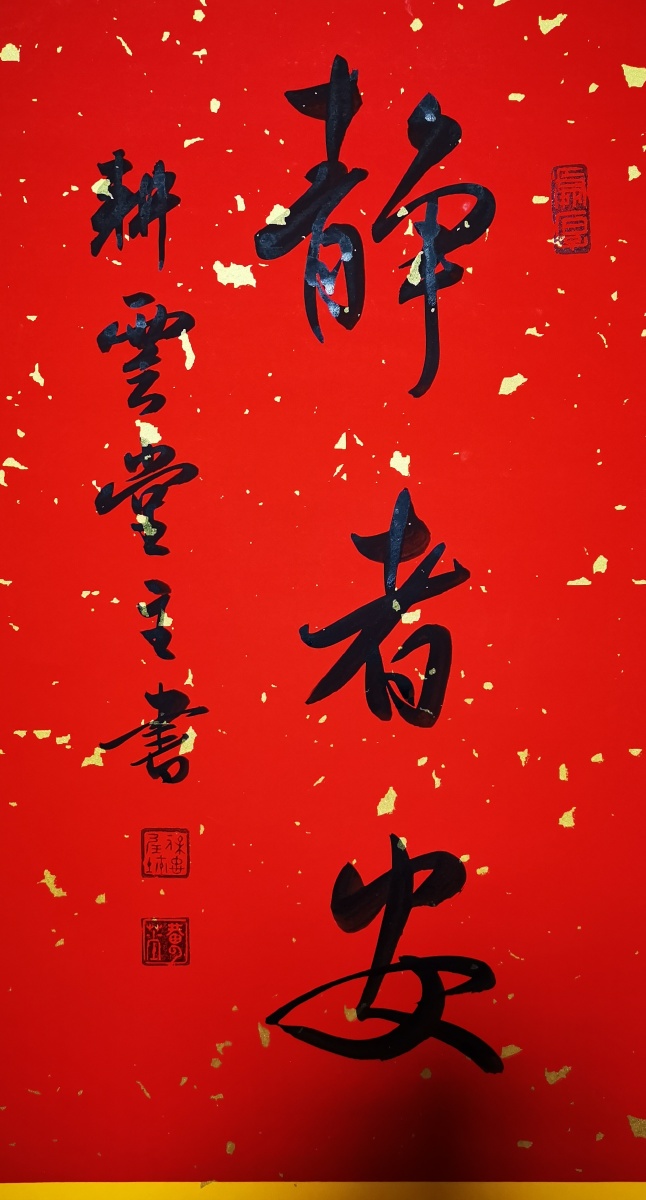 静者安
耕雲堂主書